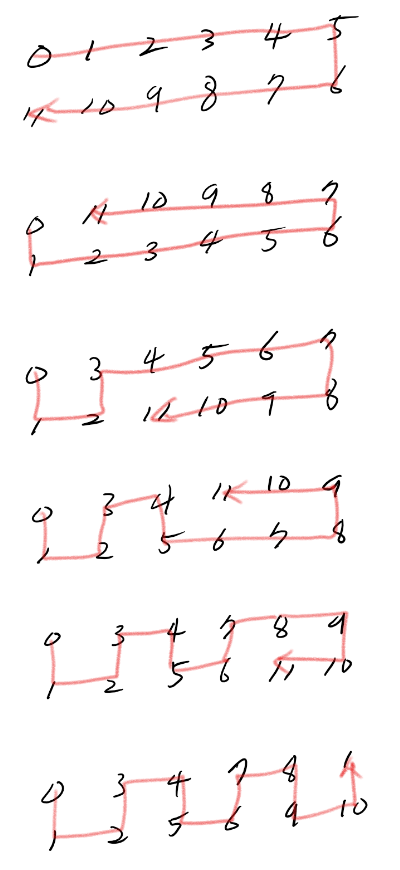 0 1 2 3 4 5
11 10 9 8 7 6
0 11 10 9 8 7
1 2 3 4 5 6
0 3 4 5 6 7
1 2 11 10 9 8
0 3 4 11 10 9
1 2 5 6 7 8
0 3 4 7 8 9
1 2 5 6 11 10
0 3 4 7 8
1 2 5 6 9 10